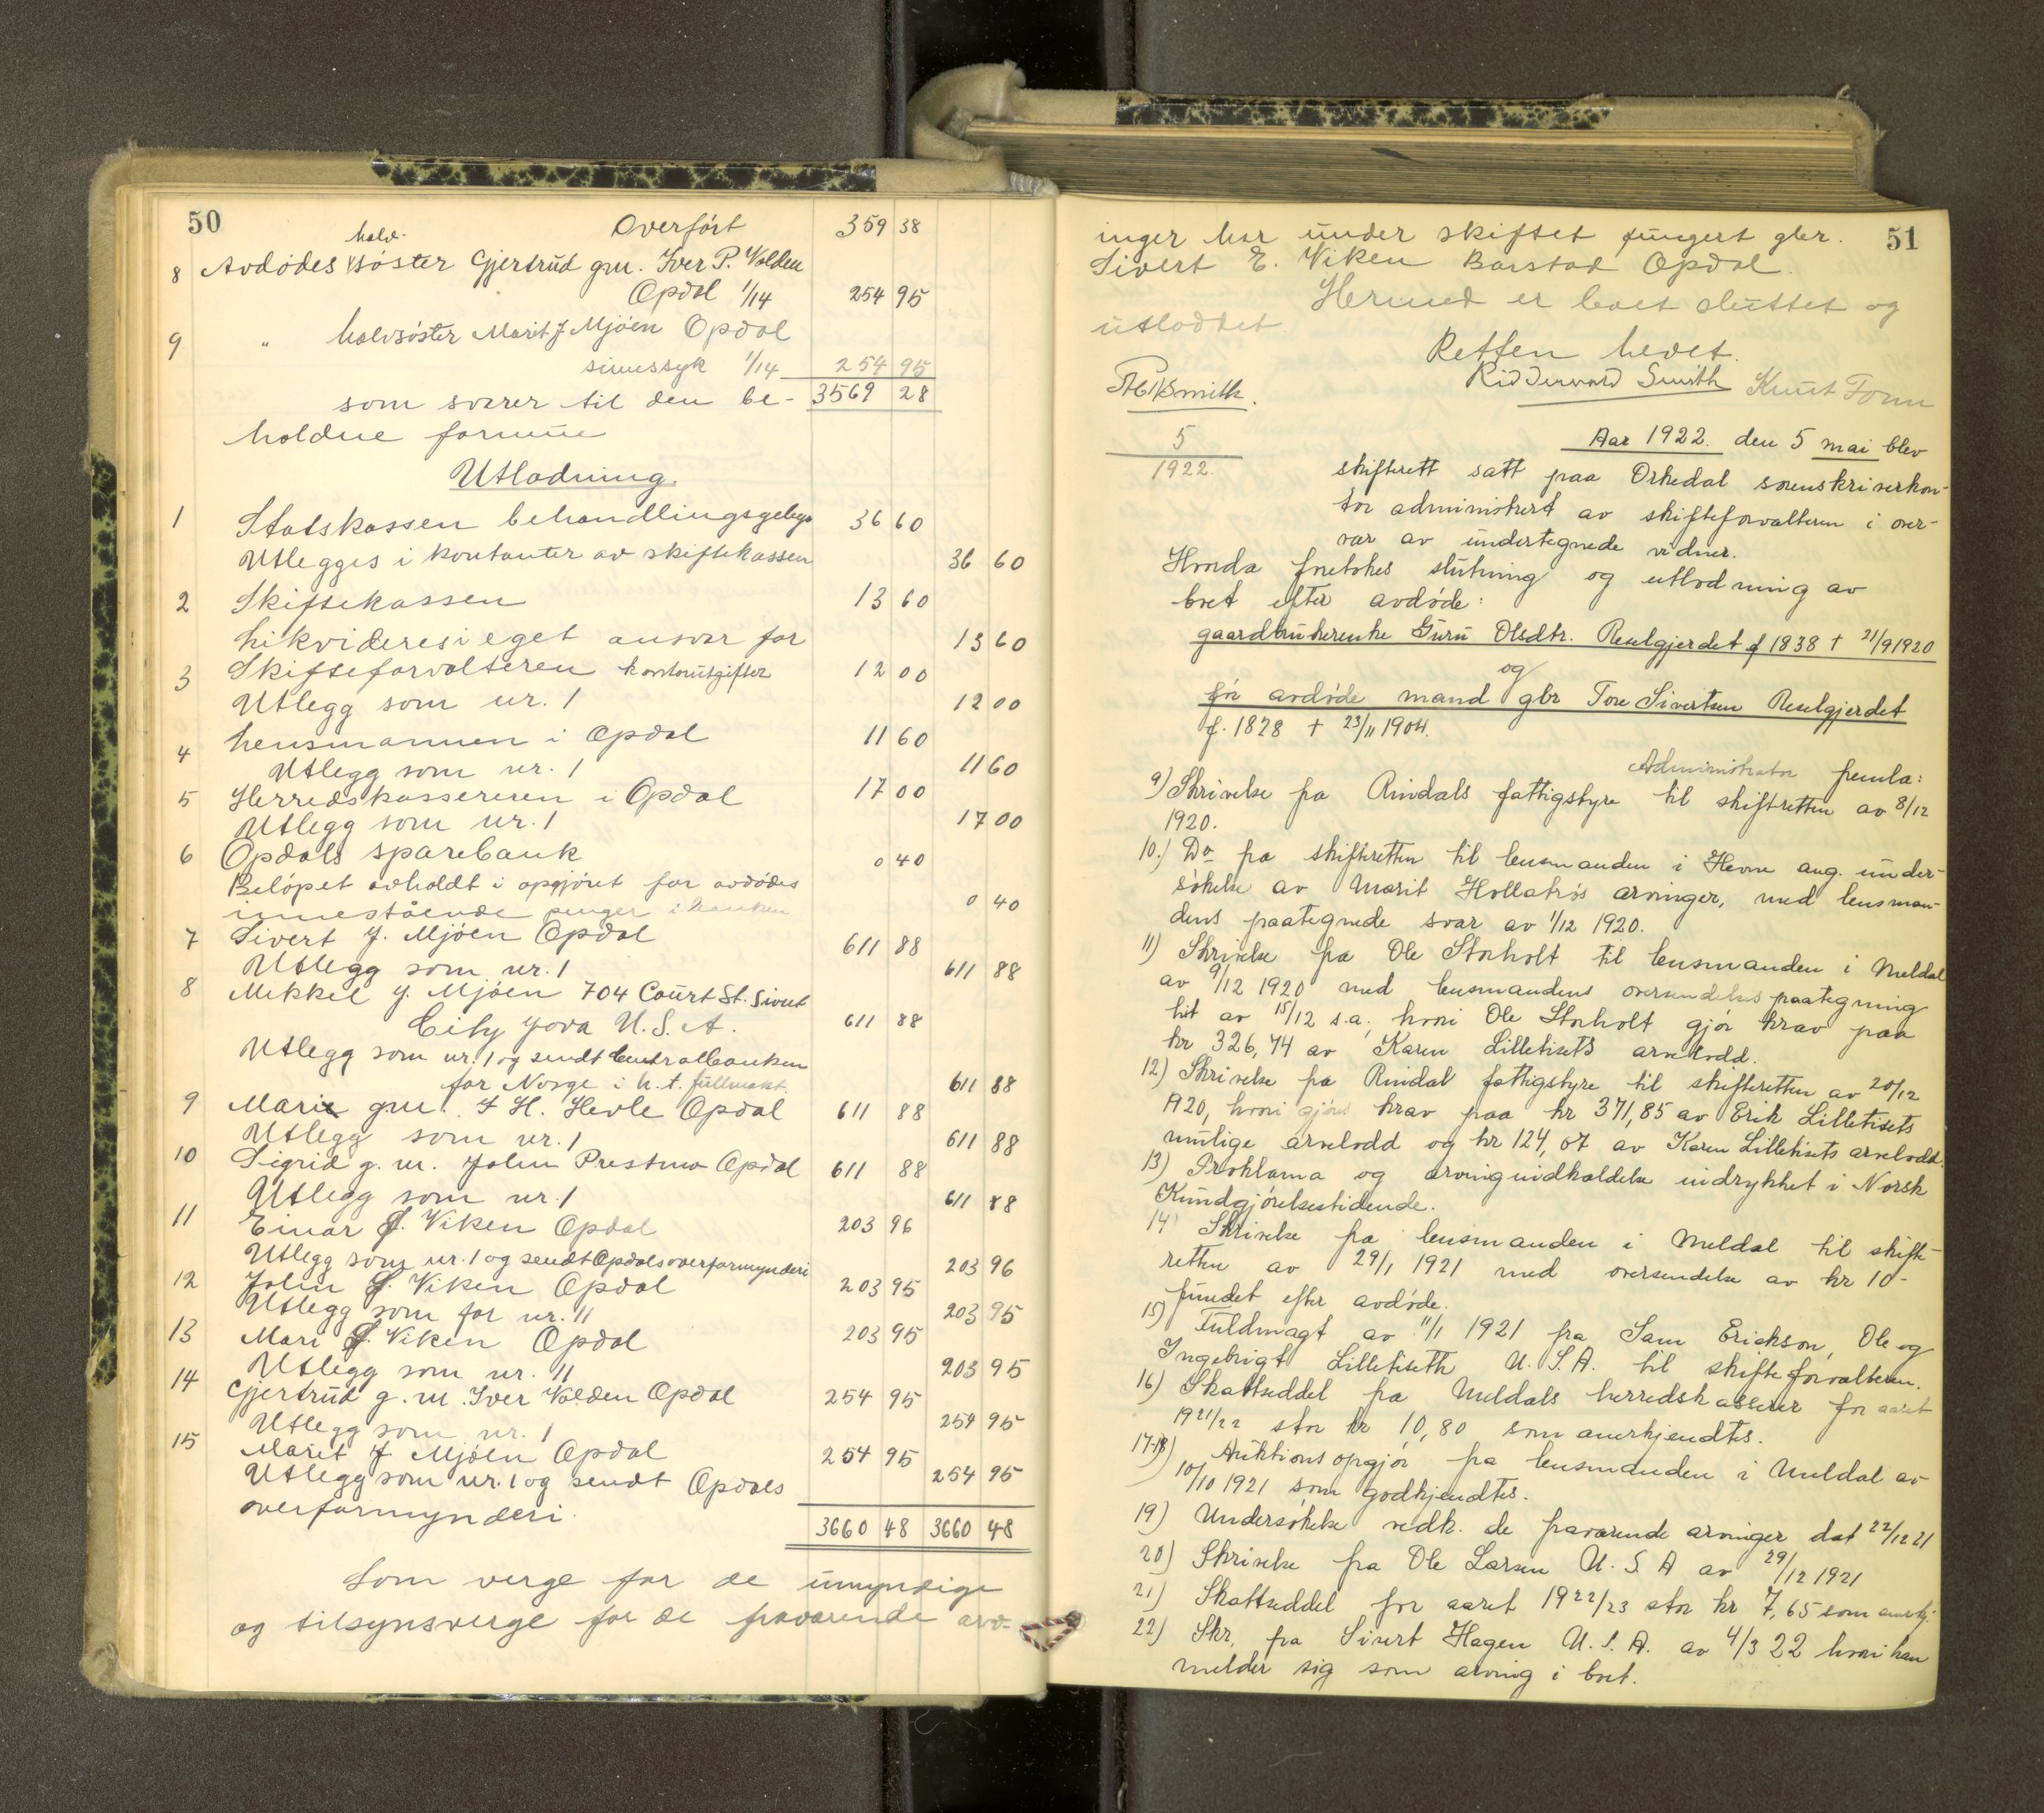 50
Overført 359 38
8 Avdødes halv- søster Gjertrud gm. Iver P. Volden
Opdal 1/14 254 95
9 " halvsøster Marit J Mjøen Opdal
sinnssyk 1/14 254 95
som svarer til den be- 3569 28
holdne formue
Utlodning.
1 Statskassen behandlingsgebyr 36 60
Utlegges i kontanter av skiftekassen 36 60
2 Skiftekassen 13 60
Likvideres i eget ansvar for 13 60
3 Skifteforvalteren kontorutgifter 12 00
Utlegg som nr. 1 12 00
4 Lensmannen i Opdal 11 60
Utlegg som nr. 1 11 60
5 Herredskassereren i Opdal 17 00
Utlegg som nr. 1 17 00
6 Opdals sparebank 0 40
Beløpet avholdt i opgjøret for avdødes
innestående penger i banken 0 40
7 Sivert J. Mjøen Opdal 611 88
Utlegg som nr. 1 611 88
8 Mikkel J. Mjøen 704 Court St. Sivut
City Jova U.S.A. 611 88
Utlegg som nr. 1 og sendt Centralbanken
for Norge i h.t. fullmakt. 611 88
9 Marie gm. J H. Hevle Opdal 611 88
Utlegg som nr. 1 611 88
10 Sigrid g. m. John Prestmo Opdal 611 88
Utlegg som nr. 1 611 88
11 Einar S. Viken Opdal 203 96
Utlegg som nr. 1 og sendt Opdals overformynderi 203 96
12 John S. Viken Opdal 203 95
Utlegg som for nr. 11 203 95
13 Mari S. Viken Opdal 203 95
Utlegg som nr. 11 203 95
14 Gjertrud g. m. Iver Volden Opdal 254 95
Utlegg som nr. 1 254 95
15 Marit J Mjøen Opdal 254 95
Utlegg som nr. 1 og sendt Opdals 254 95
overformynderi.
3660 48 3660 48
Som verge for de umyndige
og tilsynsverge for de fraværende arv-
51
inger har under skiftet fungert gbr.
Sivert E. Viken Barstad Opdal.
Hermed er boet sluttet og
utloddet
Retten hevet.
Ridderword Smith Knut Tonn
Smith.
5
1922.
Aar 1922. den 5 mai blev
skifterett satt paa Orkedal sorenskriverkon-
tor administrert av skifteforvalteren i over-
vær av undertegnede vidner.
Hvorda foretokes slutning og utlodning av
boet efter avdøde:
gaardbrukerenke Guru Olsdtr. Reselgjerdet f 1838 † 21/9 1920
og
før avdøde mand gbr Tore Sivertsen Reselgjerdet
f. 1828 † 23/11 1904.
Administrator fremla:
9) Skrivelse fra Rindals fattigstyre til skifteretten av 8/12
1920.
10.) Do fra skifteretten til lensmanden i Hevne ang. under-
søkelse av Marit Hollatrøs arvinger, med lensman-
dens paategnede svar av 1/12 1920.
11) Skrivelse fra Ole Storholt til lensmanden i Meldal
av 9/12 1920 med lensmandens oversendelses paategning
hit av 15/12 s.a. hvori Ole Storholt gjør krav paa
kr 326,74 av Karen Lilletisets arvelodd.
12) Skrivelse fra Rindal fattigstyre til skifteretten av 20/12
1920, hvori gjøres krav paa kr 371,85 av Erik Lilletisets
mulige arvelodd og kr 124,07 av Karen Lilletisets arvelodd.
13) Proklama og arvingindkaldelse indrykket i Norsk
Kundgjørelsestidende.
14) Skrivelse fra lensmanden i Meldal til skifte-
retten av 29/1 1921 med oversendelse av kr 10-
fundet efter avdøde.
15) Fuldmagt av 11/1 1921 fra Sam Erickson, Ole og
Ingebrigt Lilletiseth U.S.A. til skifteforvalteren.
16) Skatteseddel fra Meldals herredskasserer for aaret
1921/22 stor kr 10,80 som anerkjendtes.
17-18) Auktionsopgjør fra lensmanden i Meldal av
10/10 1921 som godkjendtes.
19) Undersøkelse vedk. de fraværende arvinger dat 22/12 21
20) Skrivelse fra Ole Larsen U.S.A av 29/12 1921
21) Skatteseddel for aaret 1922/23 stor kr 7,65 som anerkj.
22) Skr. fra Sivert Hagen U.S.A. av 4/3 22 hvori han
melder sig som arving i boet.